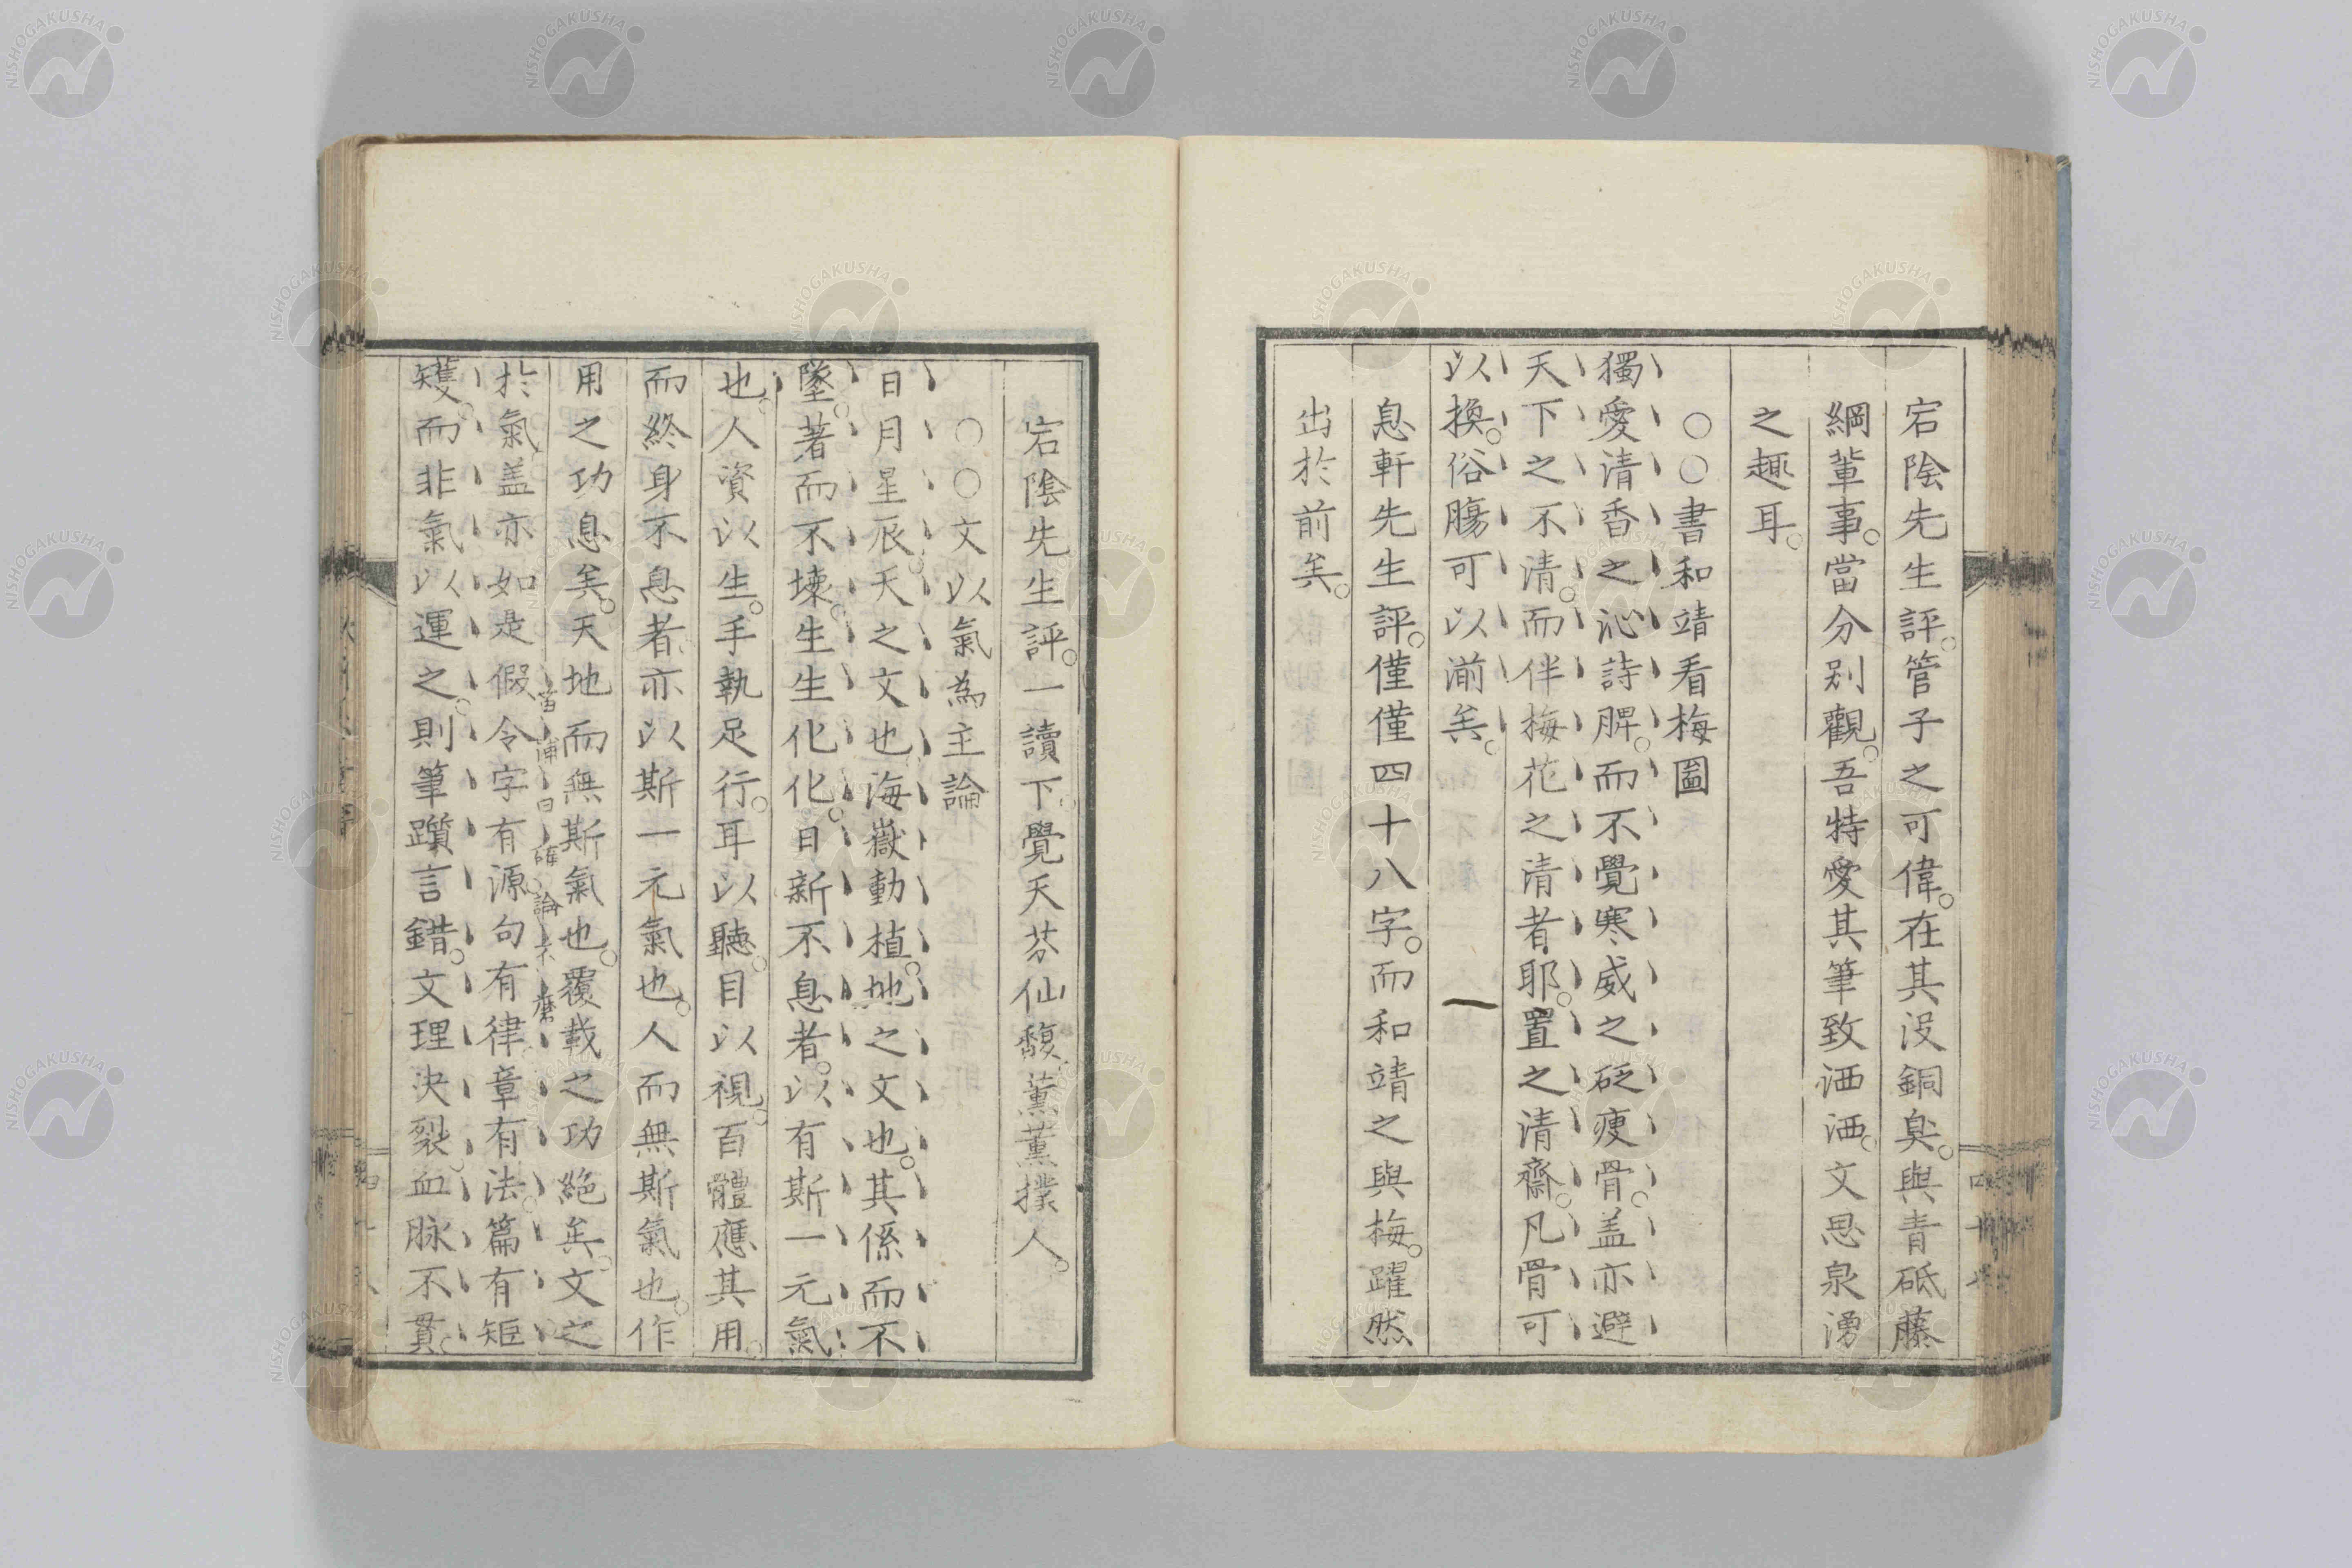 宕陰先生評。管子之可偉。在其沒銅臭。與青砥藤
綱輩事。當分別觀。吾特愛其筆致洒洒。文思泉湧
之趣耳。
○○書和靖看梅圖
獨愛清香之沁詩脾。而不覺寒威之砭瘦骨。盖亦避
天下之不清。而伴梅花之清者耶。置之清齋。凡骨可
以換。俗腸可以湔矣。
息軒先生評。僅僅四十八字。而和靖之與梅。躍然
出於前矣。
宕陰先生評。一讀下。覺天芬仙馥。薰薰撲人。
○○文以氣為主論
日月星辰。天之文也。海嶽動植。地之文也。其係而不
墜。著而不壊。生生化化。日新不息者。以有斯一元氣
也。人資以生。手執足行。耳以聽。目以視。百體應其用。
而終身不息者。亦以斯一元氣也。人而無斯氣也。作
用之功息矣。天地而無斯氣也。覆載之功絕矣。文之
於氣盖亦如是。假令字有源。句有律。章有法。篇有矩
矱。而非氣以運之。則筆躓言錯。文理決裂。血脉不貫。
NISHOGAKUSHA